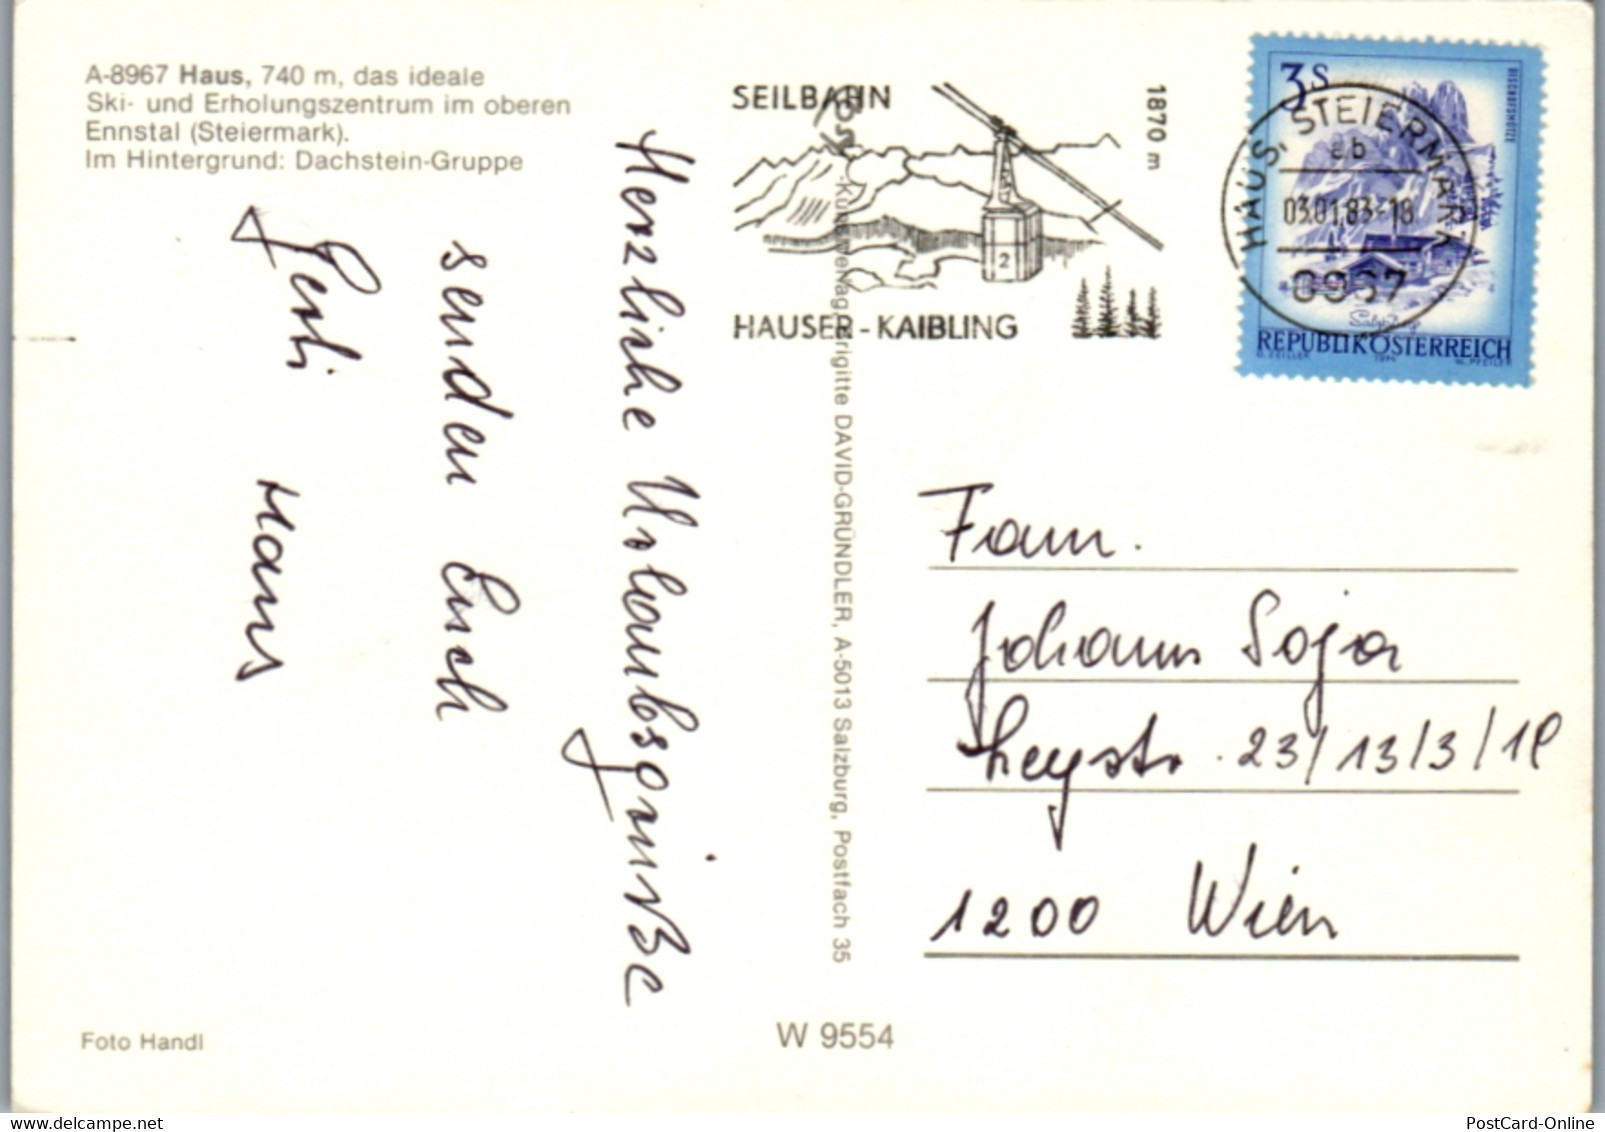 A-8967 Haus, 740 m, das ideale
Ski- und Erholungszentrum im oberen
Ennstal (Steiermark).
Im Hintergrund: Dachstein-Gruppe
SEILBAHN
1870 m
HAUSER-KAIBLING
3 S
BISCHOFSMÜTZE
Salzburg
REPUBLIK ÖSTERREICH
O. ZEILLER 1974 W. PFEILER
HAUS, STEIERMARK
ab
03.01.83-18
8967
Herzliche Urlaubsgrüße
senden Euch
Hans
Brigitte DAVID-GRÜNDLER, A-5013 Salzburg, Postfach 35
Fam.
Johann Soja
23/13/3/18
1200 Wien
Foto Handl
W 9554
PostCard-Online